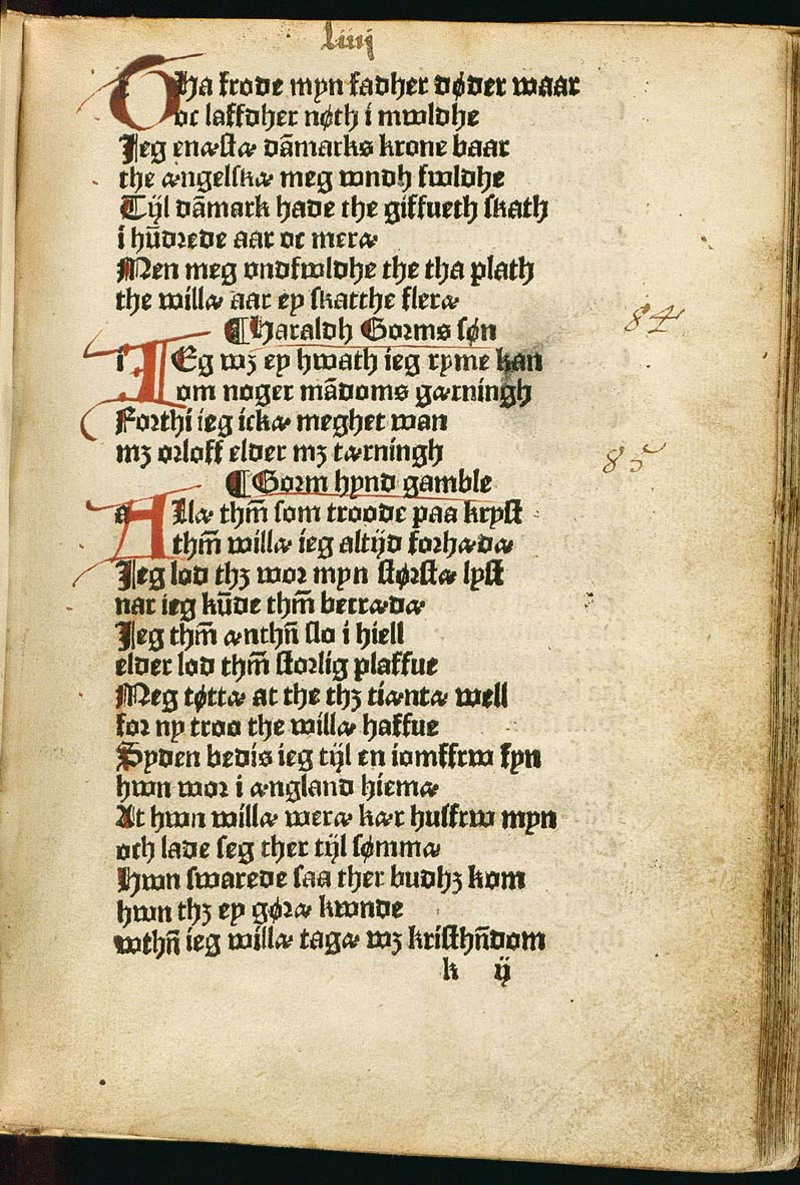 liiij
THa frode myn fadher døder waar
oc laffdher nøth i mwldhe
Jeg enæstæ dāmarks krone baar
the ængelskæ meg wndh fwldhe
Tijl dāmark hade the giffueth skath
i hūdrede aar oc meræ
Men meg vndfwldhe the tha plath
the willæ aar ey skatthe fleræ
¶ Haraldh Gorms søn
84
IEg wꝫ ey hwath ieg ryme kan
om noger mādoms gærningh
Forthi ieg ickæ meghet wan
mꝫ orloff elder mꝫ tærningh
85
¶ Gorm hynd gamble
ALlæ thm̄ som troode paa kryst
thm̄ willæ ieg altijd forhædæ
Jeg lod thꝫ wor myn størstæ lyst
nar ieg kūde thm̄ berrædæ
Jeg thm̄ ænthn̄ slo i hiell
elder lod thm̄ storlig plaffue
Meg tøttæ at the thꝫ tiæntæ well
for ny troo the willæ haffue
Syden bedis ieg tijl en iomffrw fyn
hwn wor i ængland hiemæ
At hwn willæ weræ kær husfrw myn
och lade seg ther tijl sømmæ
Hwn swarede saa ther budhꝫ kom
hwn thꝫ ey gøræ kwnde
wthn̄ ieg willæ tagæ wꝫ kristhn̄dom
k ij